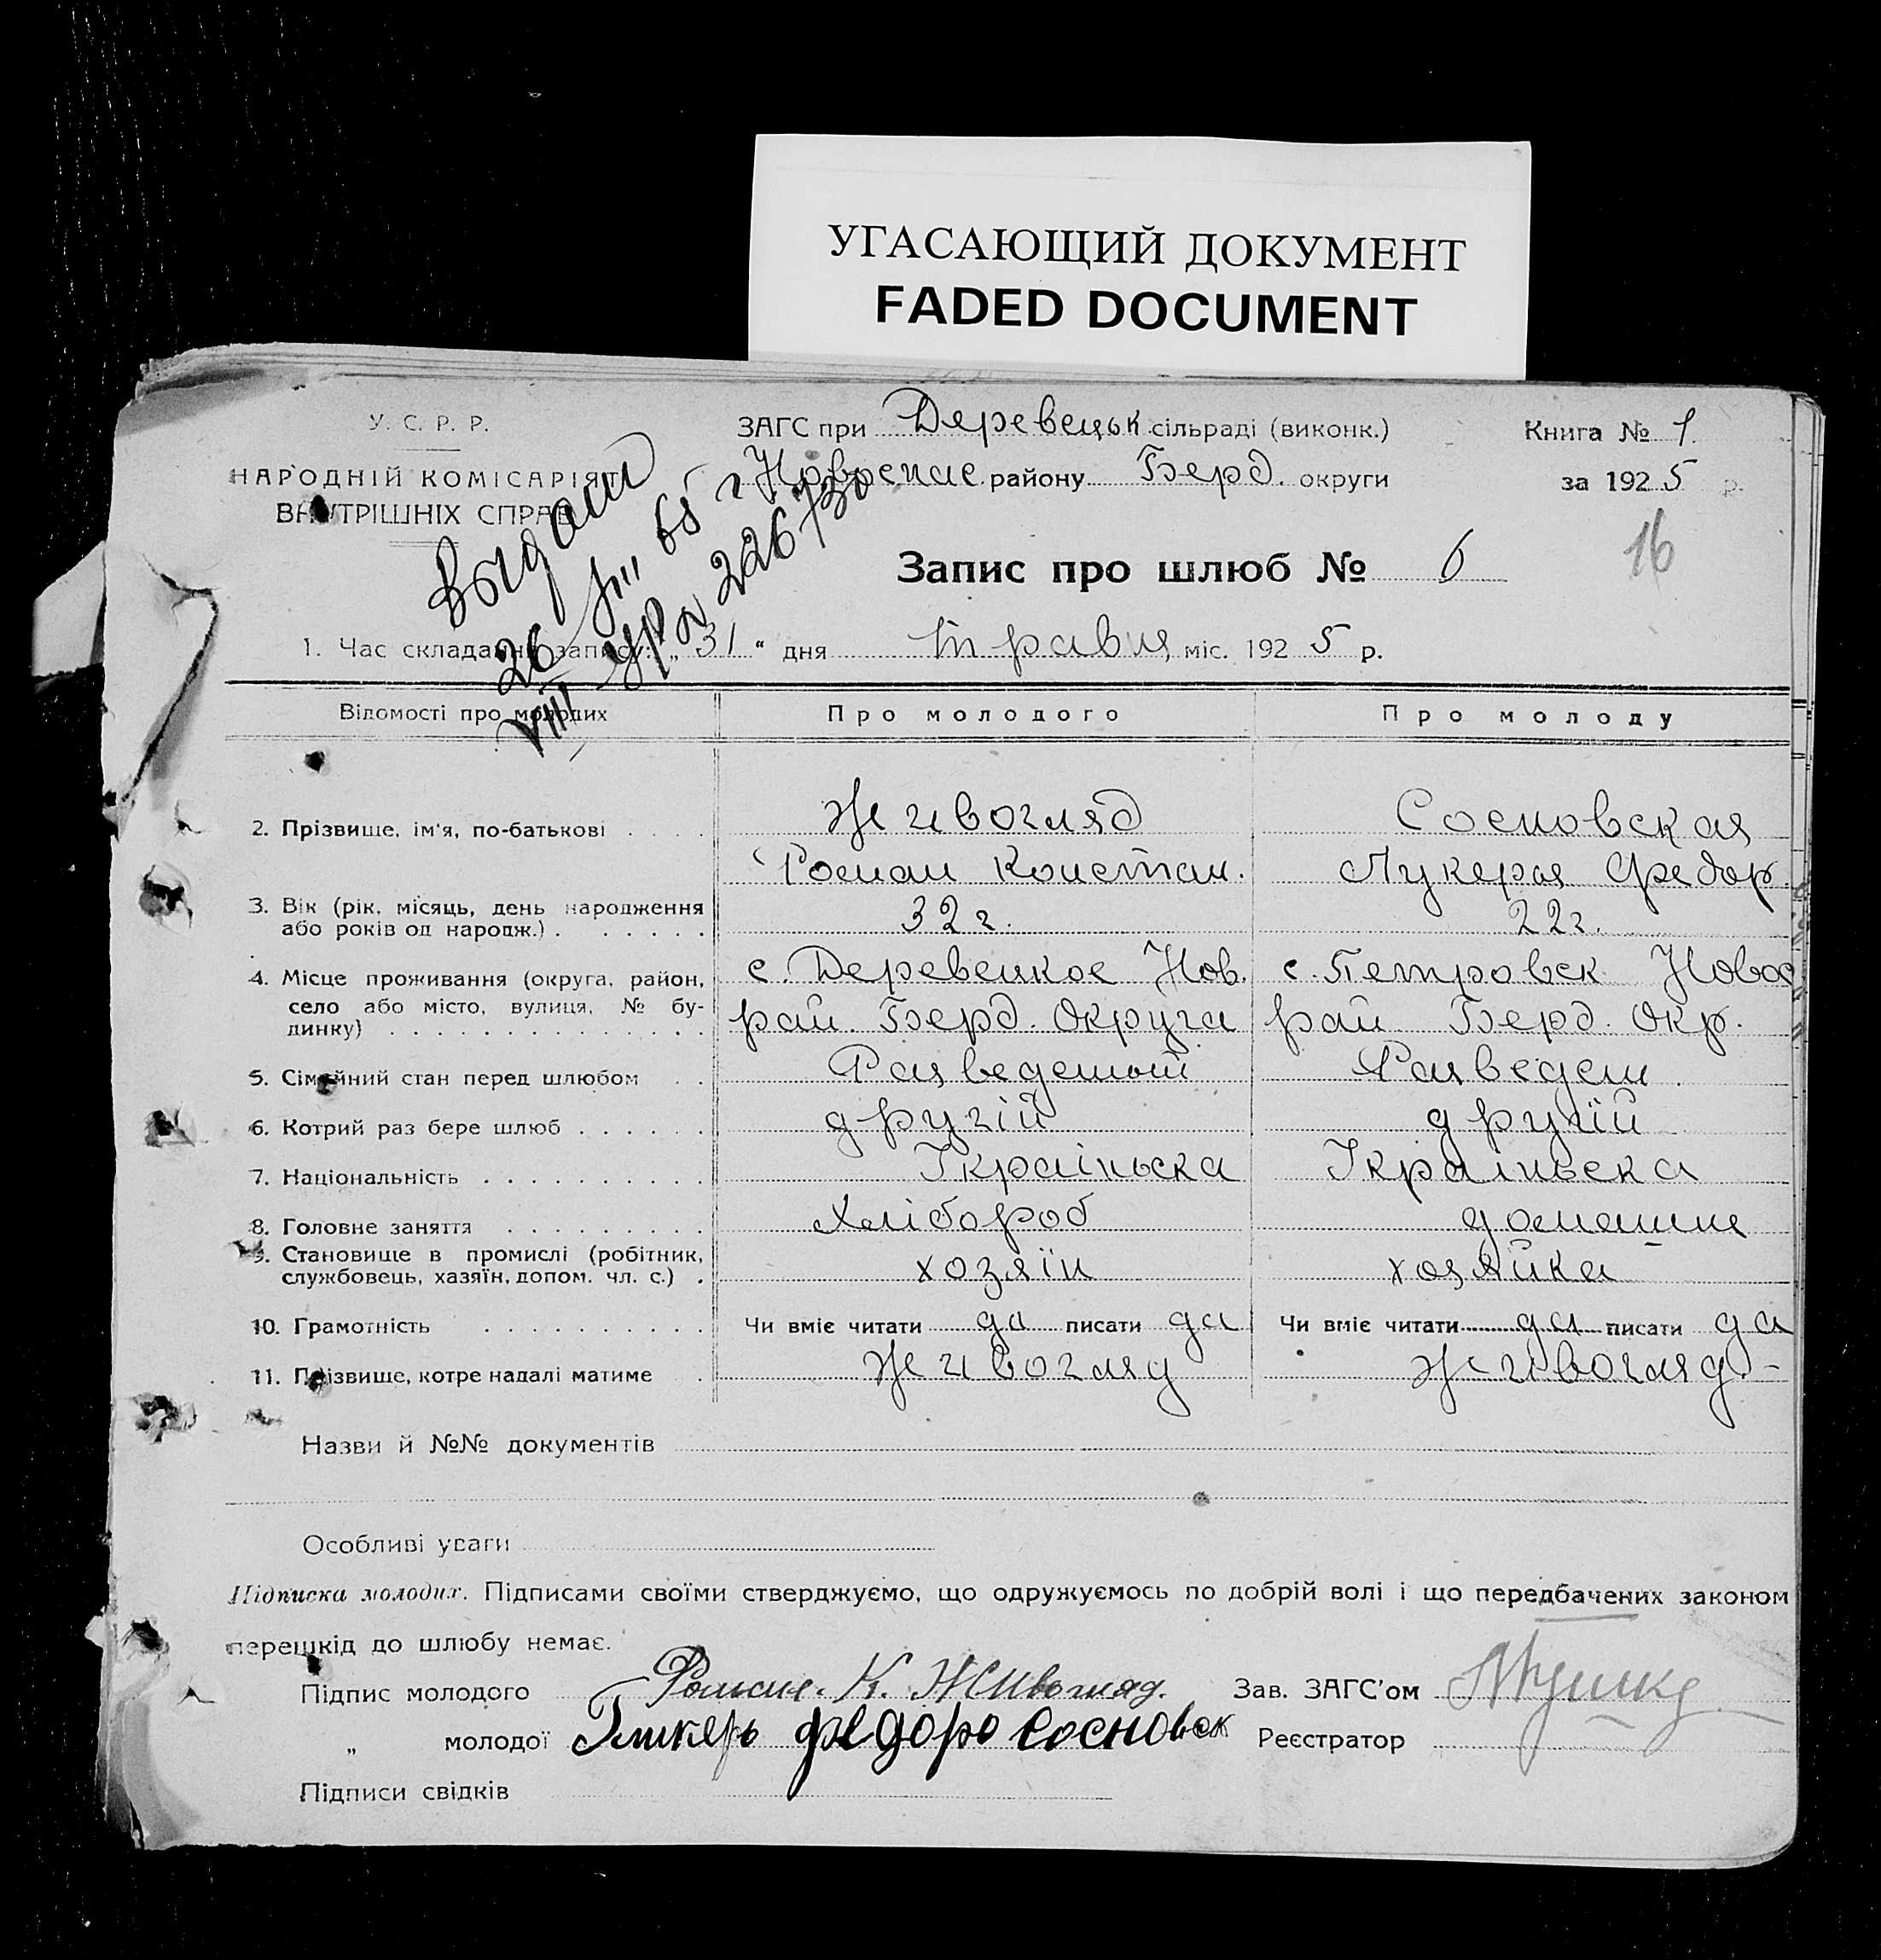 УГАСАЮЩИЙ ДОКУМЕНТ
FADED DOCUMENT
У. С. Р. Р.
НАРОДНІЙ КОМІСАРІЯТ
ВНУТРІШНІХ СПРАВ
ЗАГС при Деревецьк сільраді (виконк.)
Новоспас району Берд. округи
Книга № 1.
за 1925 р.
16
Выдан
26 VIII 65 г
226730
Запис про шлюб № 6
1. Час складання запису: „31“ дня травня міс. 1925 р.
Відомості про молодих
Про молодого
Про молоду
2. Прізвище, ім'я, по-батькові
Живогляд
Роман Констан.
Сосновская
Лукерія Федор.
3. Вік (рік, місяць, день народження
або років од народж.)
32 г.
22 г.
4. Місце проживання (округа, район,
село або місто, вулиця, № бу-
динку)
с. Деревецкое Нов.
рай. Берд. Округа
с. Петровск Новос
рай Берд. Окр.
5. Сімейний стан перед шлюбом
Разведеный
Разведен
6. Котрий раз бере шлюб
другій
другій
7. Національність
Українська
Українська
8. Головне заняття
Хлібороб
домашне
9. Становище в промислі (робітник,
службовець, хазяїн, допом. чл. с.)
хозяїн
хозяйка
10. Грамотність
Чи вміє читати да писати да
Чи вміє читати да писати да
11. Прізвище, котре надалі матиме
Живогляд
Живогляд
Назви й №№ документів
Особливі уваги
Підписка молодих. Підписами своїми стверджуємо, що одружуємось по добрій волі і що передбачених законом
перешкід до шлюбу немає.
Підпис молодого Роман. К. Живогляд.
„ молодої Гликерь федоро сосновск
Підписи свідків
Зав. ЗАГС'ом
Реєстратор